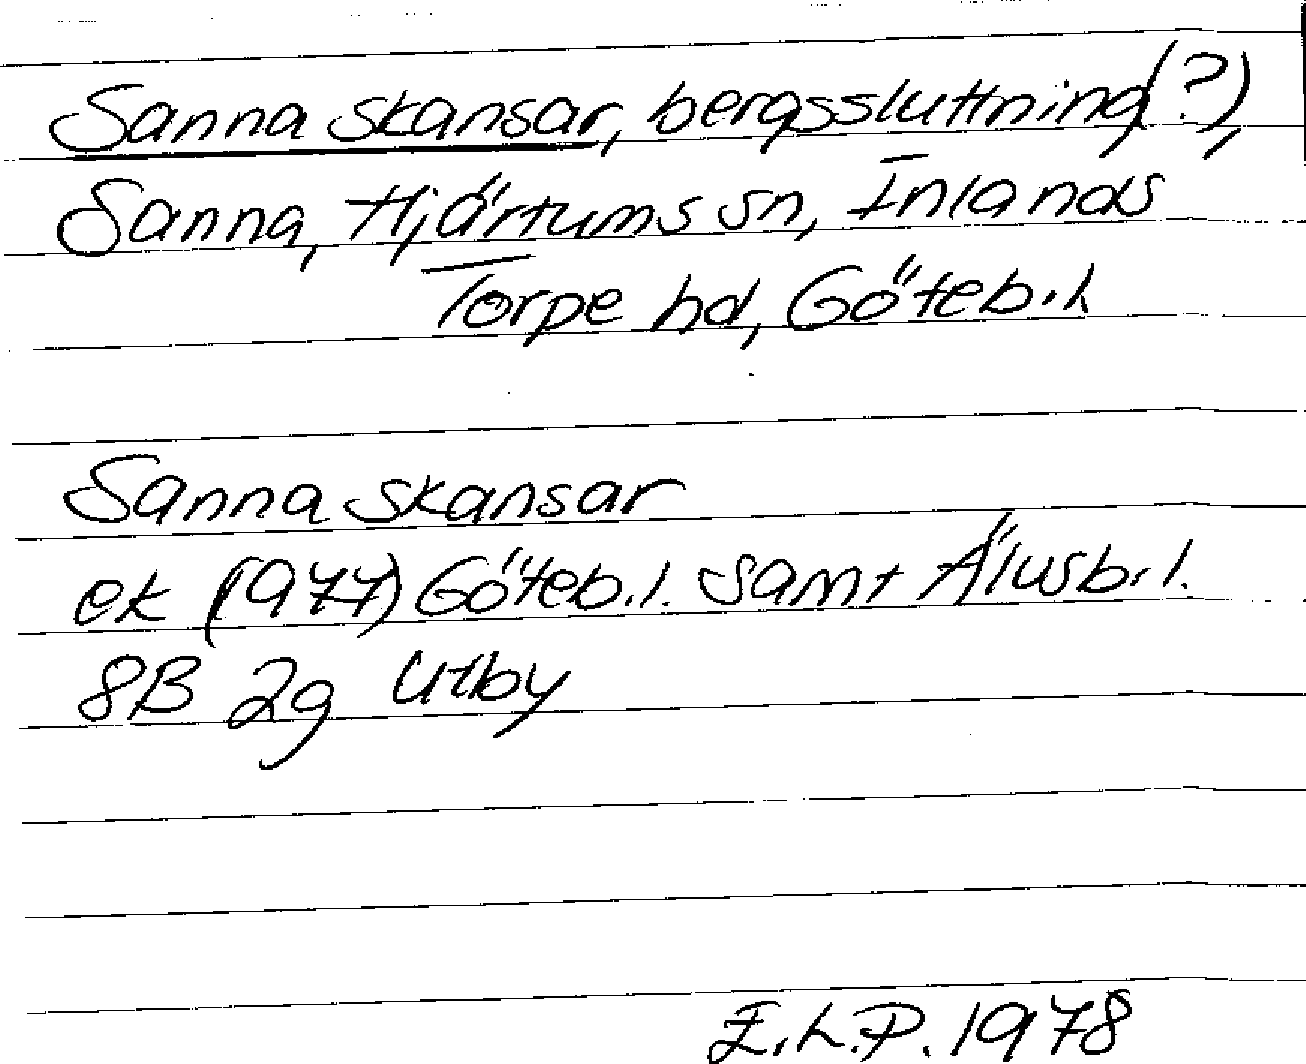 Sanna skansar, bergssluttning(?),
Sanna, Hjärtums sn, Inlands
Torpe hd, Göteb.l
Sanna skansar
ek (1977) Göteb.l. samt Älvsb.l.
8B 2g Utby
E.L.P. 1978